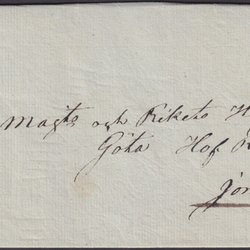 Magts och Rikets H
Göta Hof R
Jön